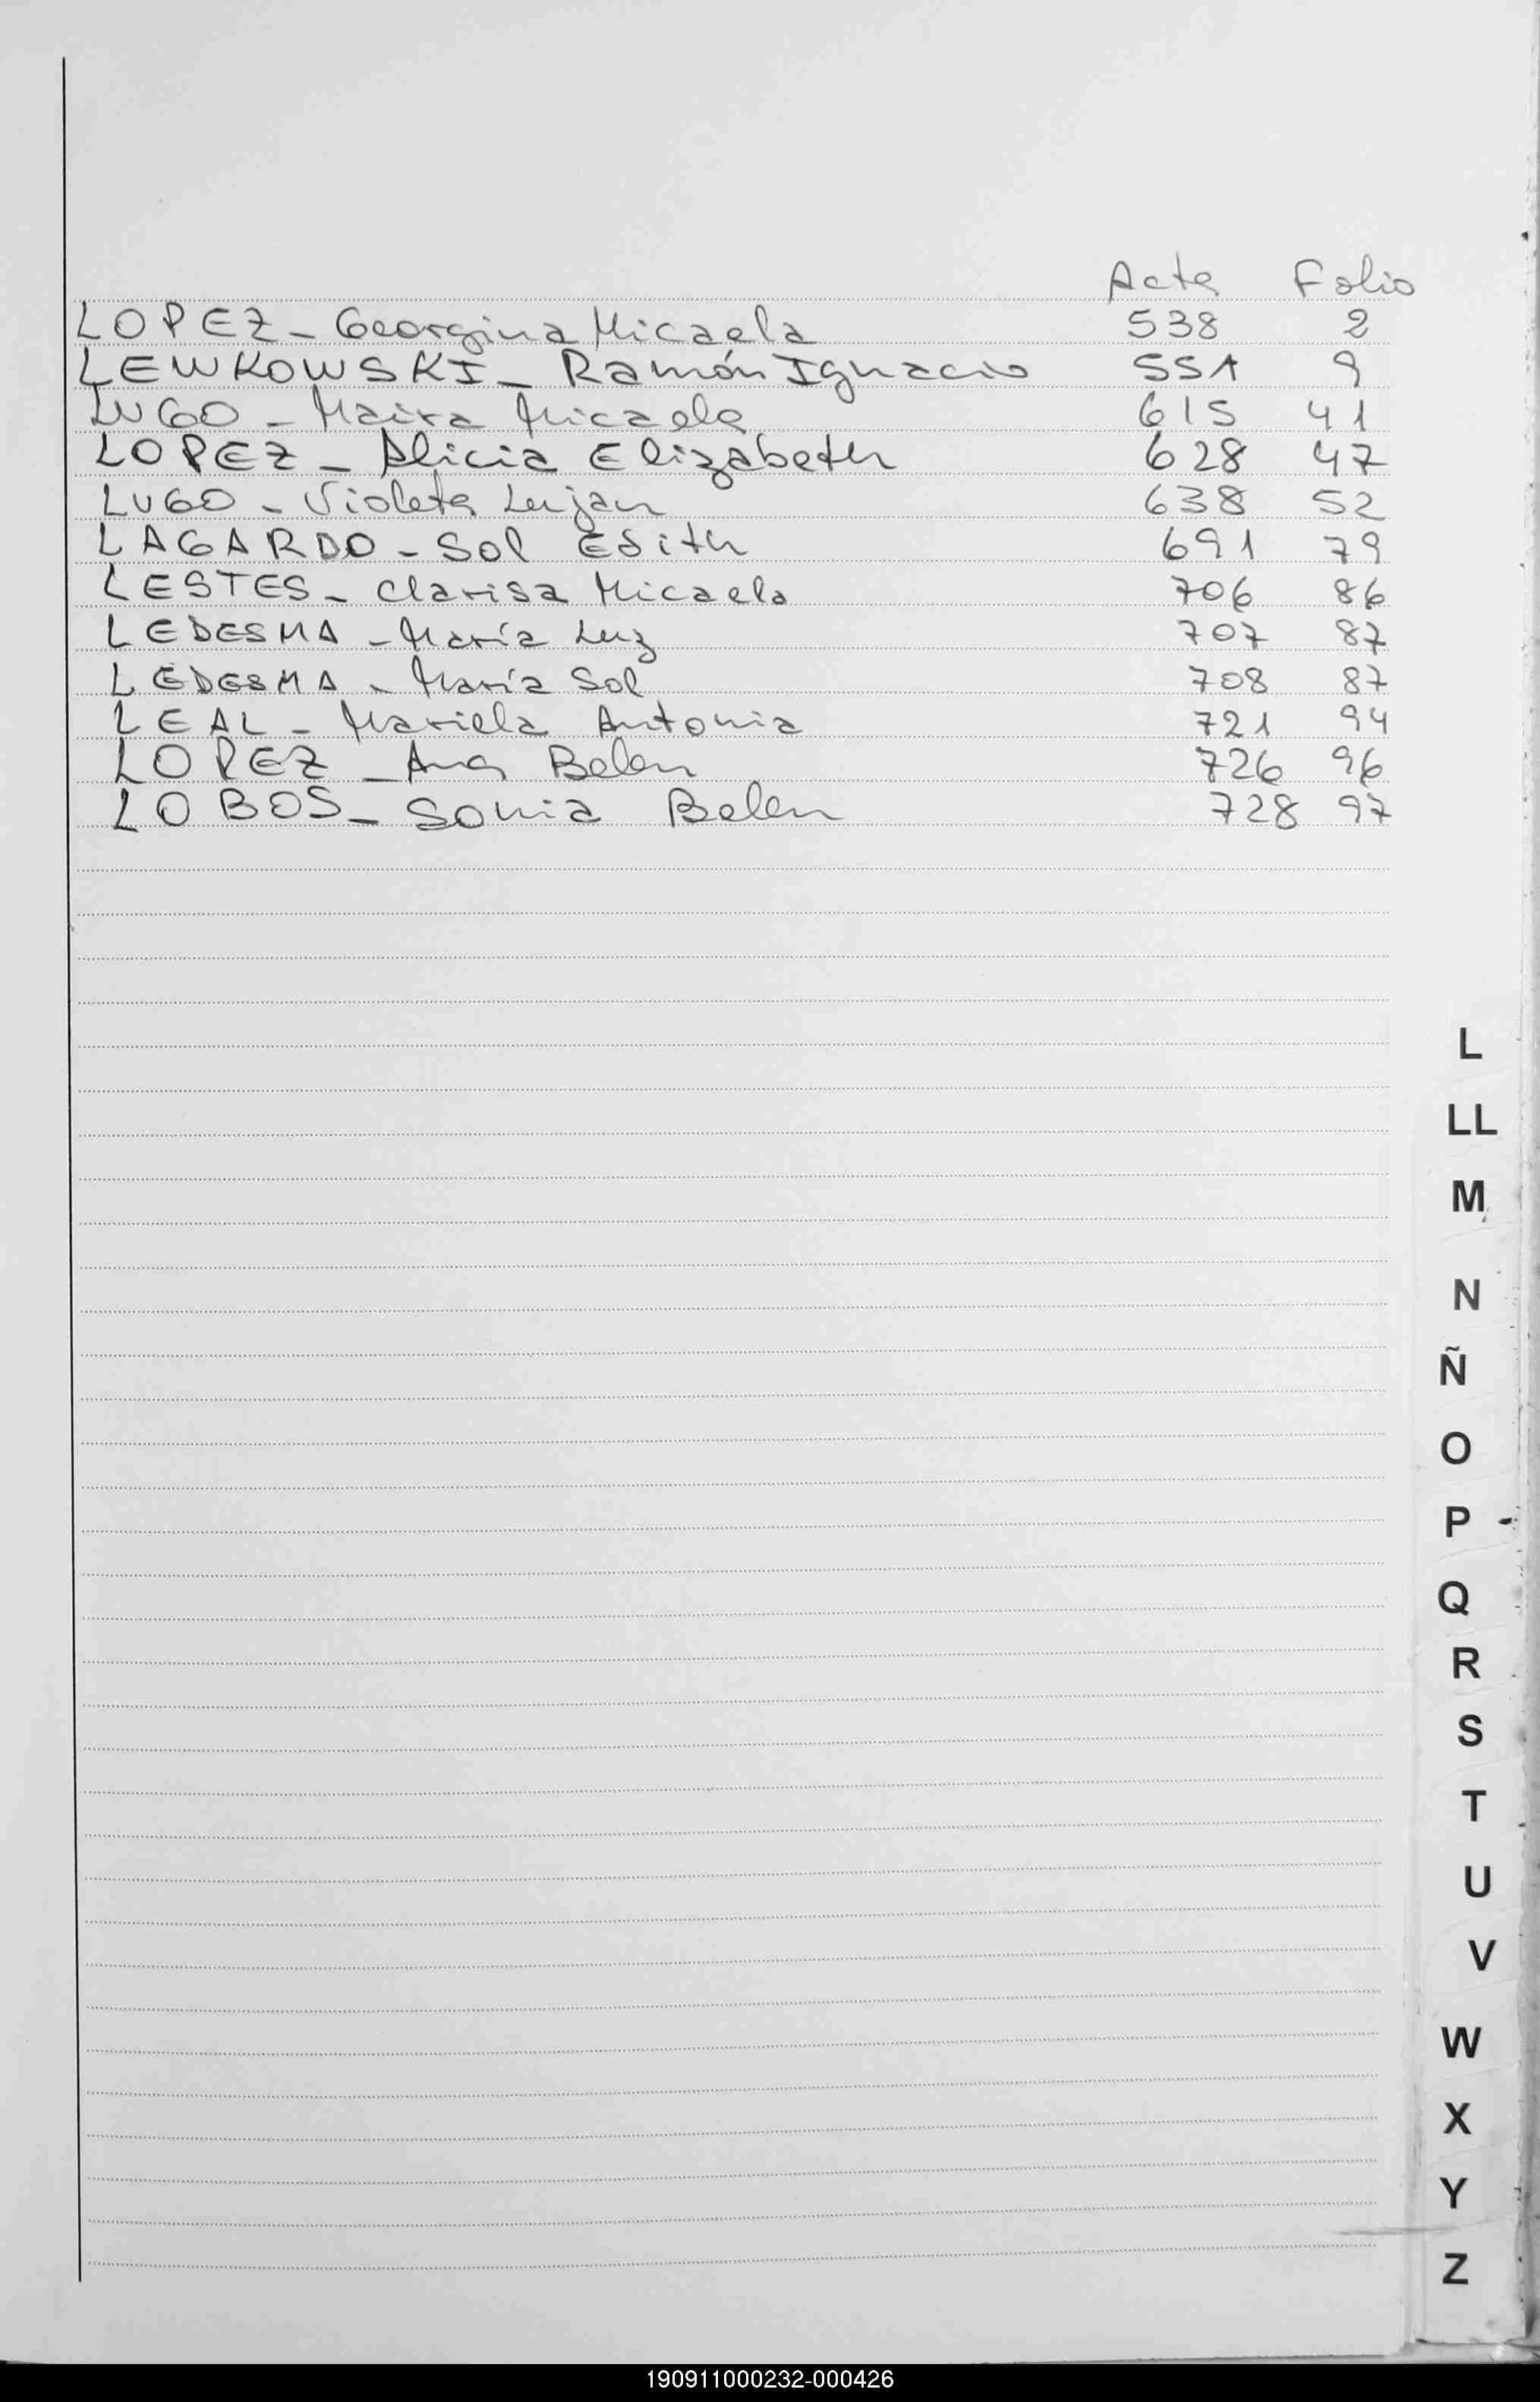 Acta Folio
LOPEZ - Georgina Micaela 538 2
LEWKOWSKI - Ramón Ignacio 551 9
LUGO - Maira Micaela 615 41
LOPEZ - Alicia Elizabeth 628 47
LUGO - Violeta Lujan 638 52
LAGARDO - Sol Edith 691 79
LESTES - Clarisa Micaela 706 86
LEDESMA - María Luz 707 87
LEDESMA - María Sol 708 87
LEAL - Mariela Antonia 721 94
LOPEZ - Ana Belen 726 96
LOBOS - Sonia Belen 728 97
L
LL
M
N
Ñ
O
P
Q
R
S
T
U
V
W
X
Y
Z
190911000232-000426